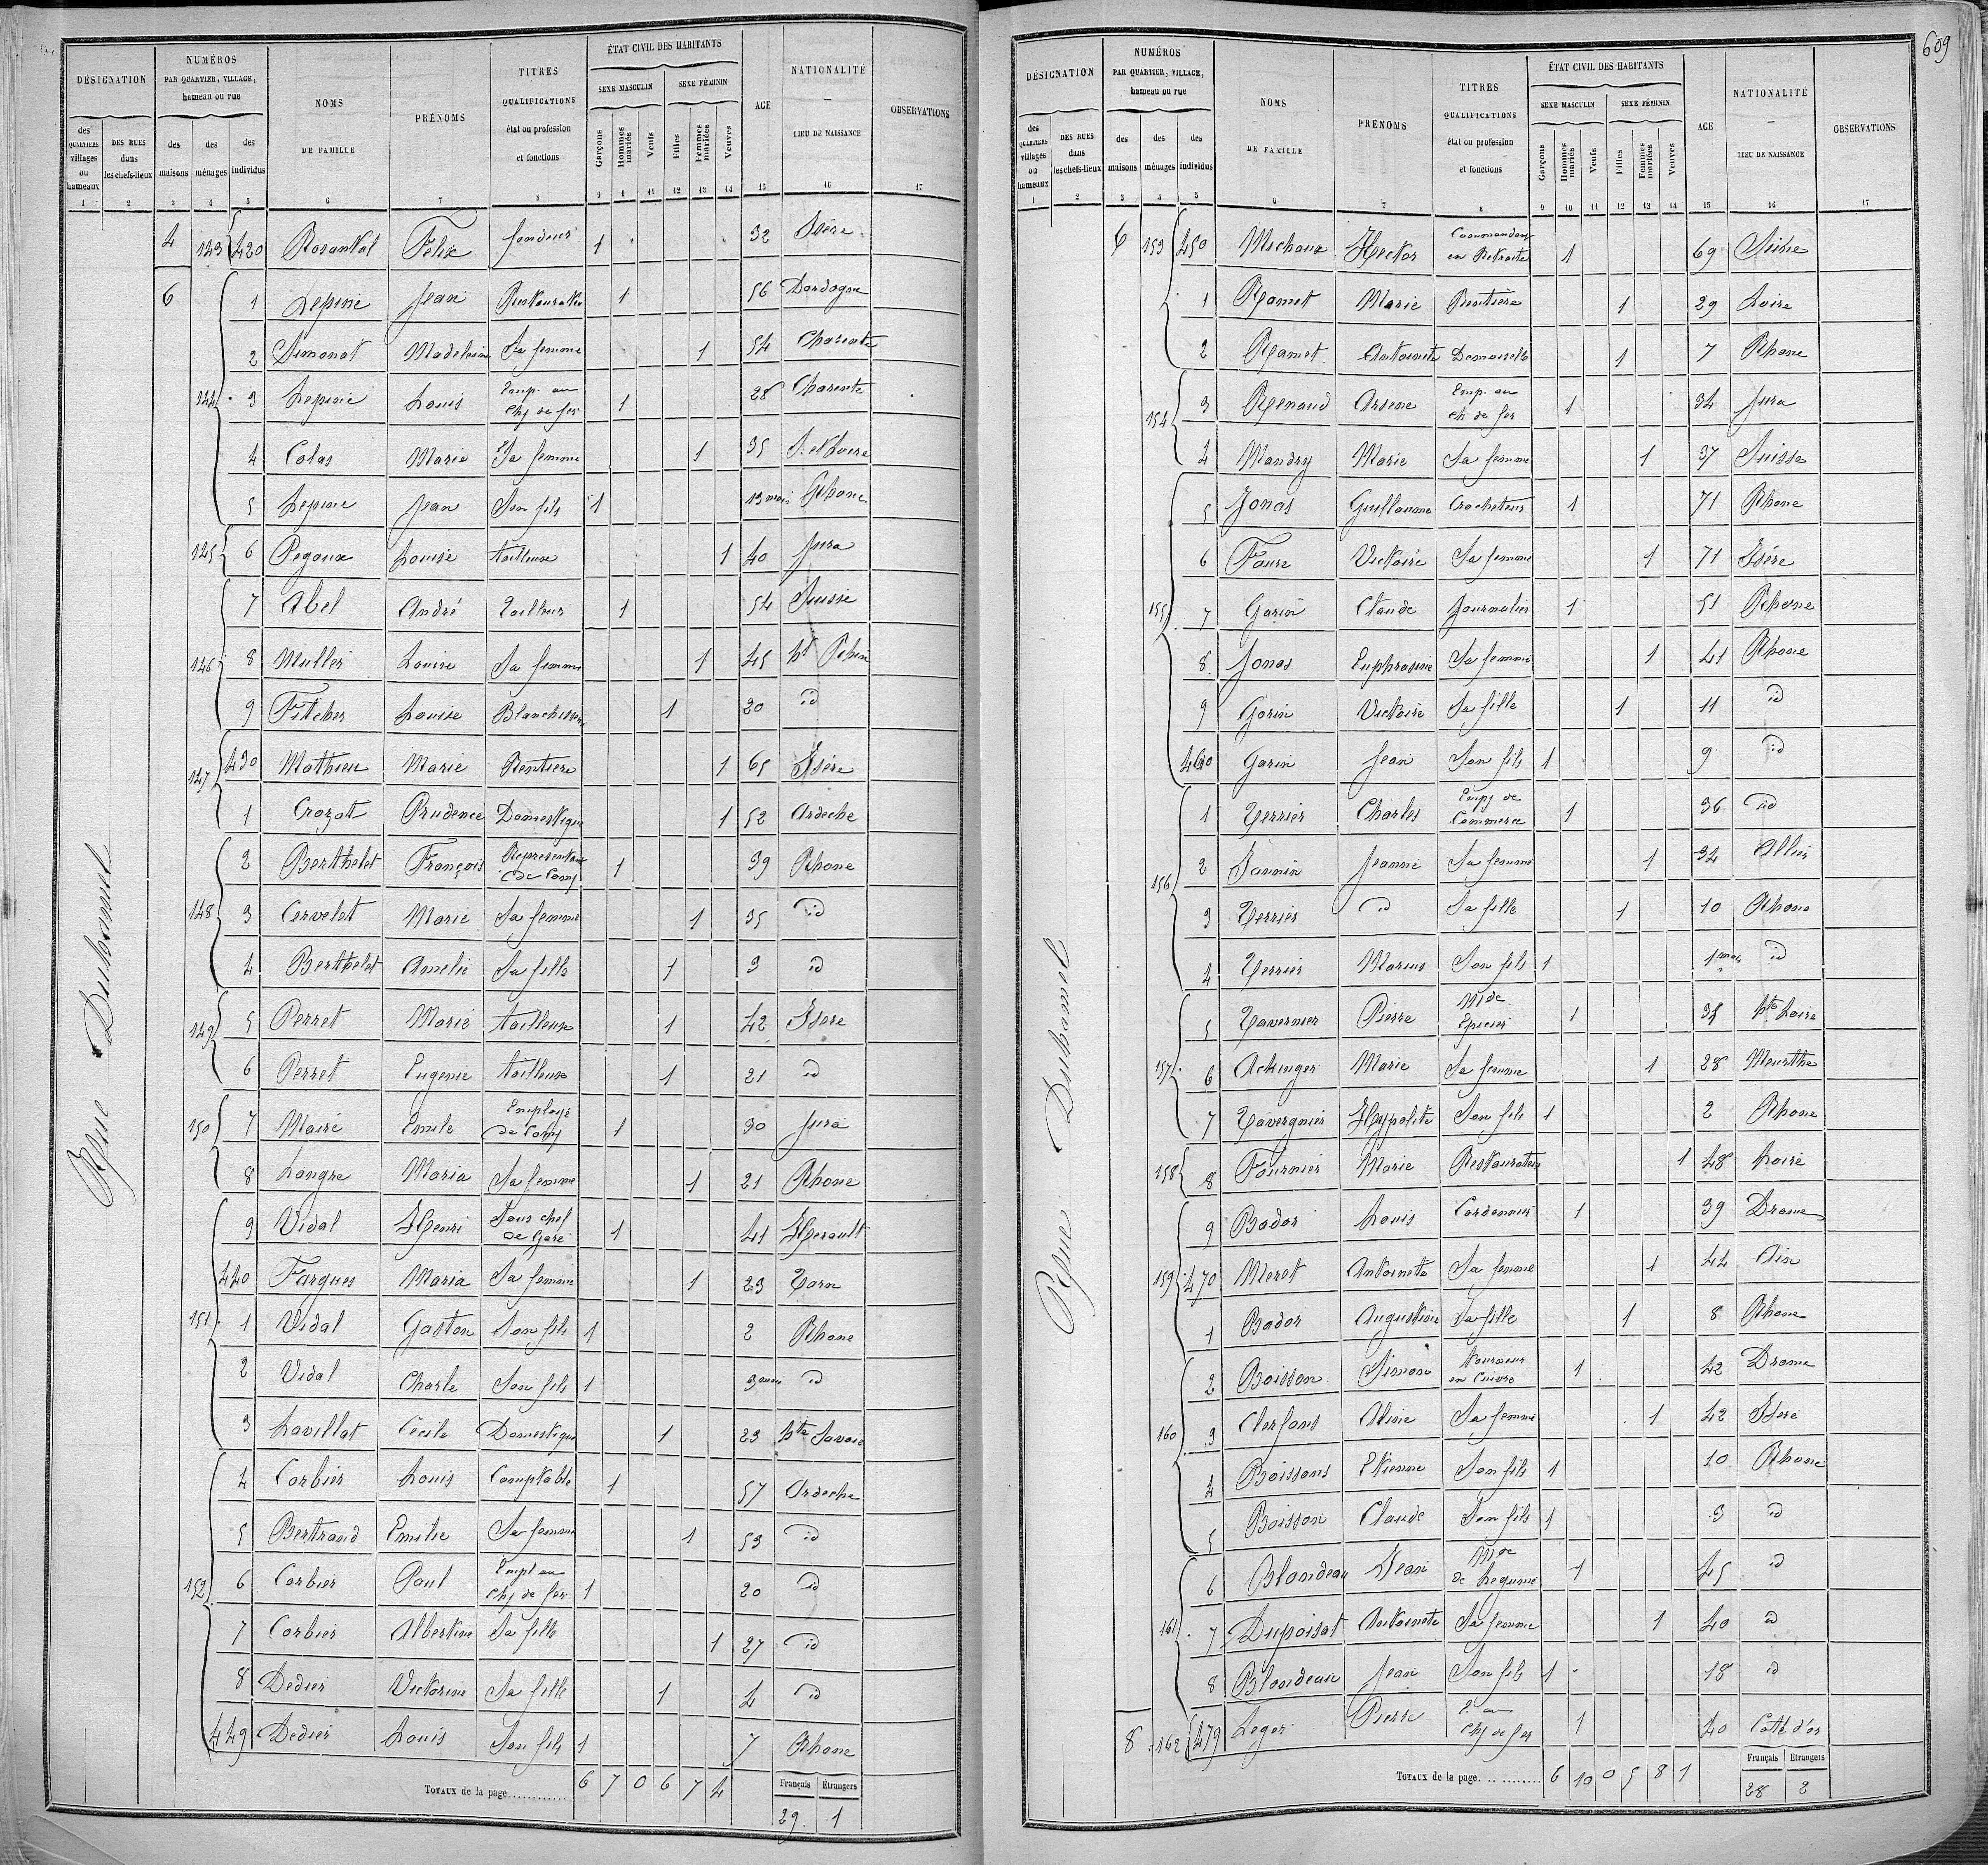 609
DÉSIGNATION
NUMÉROS
PAR QUARTIER, VILLAGE,
hameau ou rue
NOMS
DE FAMILLE
PRÉNOMS
TITRES
QUALIFICATIONS
état ou profession
et fonctions
ÉTAT CIVIL DES HABITANTS
SEXE MASCULIN
SEXE FÉMININ
AGE
NATIONALITÉ
LIEU DE NAISSANCE
OBSERVATIONS
des QUARTIERS villages ou hameaux
DES RUES dans les chefs-lieux
des maisons
des ménages
des individus
Garçons
Hommes mariés
Veufs
Filles
Femmes mariées
Veuves
1 2 3 4 5 6 7 8 9 1 11 12 13 14 15 16 17
Rue Duhamel
4 143 420 Rosankol Félix fondeur 1 32 Isère
6 1 Lepine Jean Restaurateu 1 56 Dordogne
2 Simonat Madeleine Sa femme 1 54 Charente
144 3 Lepine Louis Emp. au Chj de fer 1 28 Charente
4 Colas Marie Sa femme 1 35 S. et Loire
5 Lepine Jean Son fils 1 13 mois Rhone
145 6 Pegoux Louise tailleuse 1 40 Jura
7 Abel André Tailleur 1 54 Suisse
146 8 Muller Louise Sa femme 1 45 ht Rhin
9 Fitcher Louise Blanchisseuse 1 20 id
147 430 Mathieu Marie Rentiere 1 65 Isére
1 Crozat Prudence Domestique 1 52 Ardeche
2 Berthelet François Representant de Comj 1 39 Rhone
148 3 Cervelet Marie Sa femme 1 35 id
4 Berthelet Amelie Sa fille 1 3 id
149 5 Perret Marie tailleuse 1 42 Isere
6 Perret Eugenie tailleuse 1 21 id
150 7 Maire Emile Employé de Comj 1 30 Jura
8 Langre Maria Sa femme 1 21 Rhone
9 Vidal Henri Sous chef de Gare 1 41 Herault
440 Fargues Maria Sa femme 1 23 Tarn
151 1 Vidal Gaston Son fils 1 2 Rhone
2 Vidal Charle Son fils 1 3 mois id
3 Lavillat Cécile Domestique 1 23 hte Savoie
4 Corbier Louis Comptable 1 57 Ardeche
5 Bertrand Emilie Sa femme 1 53 id
152 6 Corbier Paul Empl au Chj de fer 1 20 id
7 Corbier Albertine Sa fille 1 27 id
8 Dedier Victorine Sa fille 1 4 id
449 Dedier Louis Son fils 1 7 Rhone
TOTAUX de la page 6 7 0 6 7 4
Français Étrangers
29 1
DÉSIGNATION
NUMÉROS
PAR QUARTIER, VILLAGE,
hameau ou rue
NOMS
DE FAMILLE
PRÉNOMS
TITRES
QUALIFICATIONS
état ou profession
et fonctions
ÉTAT CIVIL DES HABITANTS
SEXE MASCULIN
SEXE FÉMININ
AGE
NATIONALITÉ
LIEU DE NAISSANCE
OBSERVATIONS
des QUARTIERS villages ou hameaux
DES RUES dans les chefs-lieux
des maisons
des ménages
des individus
Garçons
Hommes mariés
Veufs
Filles
Femmes mariées
Veuves
1 2 3 4 5 6 7 8 9 10 11 12 13 14 15 16 17
Rue Duhamel
6 153 450 Michoux Hector Commandant en Retraite 1 69 Suisse
1 Ramet Marie Rentière 1 29 Loire
2 Ramet Antoinete Demoiselle 1 7 Rhone
154 3 Renaud Arsene Emp. au ch de fer 1 34 Jura
4 Mandry Marie Sa femme 1 37 Suisse
5 Jonas Guillaume Crocheteur 1 71 Rhone
6 Faure Victoire Sa femme 1 71 Isére
155 7 Garin Claude Journalier 1 51 Rhone
8 Jonas Euphrosine Sa femme 1 41 Rhone
9 Garin Victoire Sa fille 1 11 id
460 Garin Jean Son fils 1 9 id
1 Terrier Charles Empj de Commerce 1 36 id
156 2 Jannin Jeanne Sa femme 1 34 Allier
3 Terrier id Sa fille 1 10 Rhone
4 Terrier Marius Son fils 1 1 mois id
5 Tavernier Pierre Md Epicier 1 35 hte Loire
157 6 Ackinger Marie Sa femme 1 28 Meurthe
7 Tavergnier Hypolite Son fils 1 2 Rhone
158 8 Fournier Marie Restaurateu 1 48 Loire
9 Bador Louis Cordonnier 1 39 Drome
159 470 Meret Antoinete Sa femme 1 44 Ain
1 Bador Augustine Sa fille 1 8 Rhone
2 Boisson Simon tourneur en Cuivre 1 42 Drome
160 3 Clerfons Aline Sa femme 1 42 Isere
4 Boissons Etienne Son fils 1 10 Rhone
5 Boisson Claude Son fils 1 3 id
6 Blondeau Jean Md de Legume 1 45 id
161 7 Dupoisat Antoinete Sa femme 1 40 id
8 Blondeau Jean Son fils 1 18 id
8 162 479 Leger Pierre E. au Chj de fer 1 40 Cote d'or
TOTAUX de la page 6 10 0 5 8 1
Français Étrangers
28 2